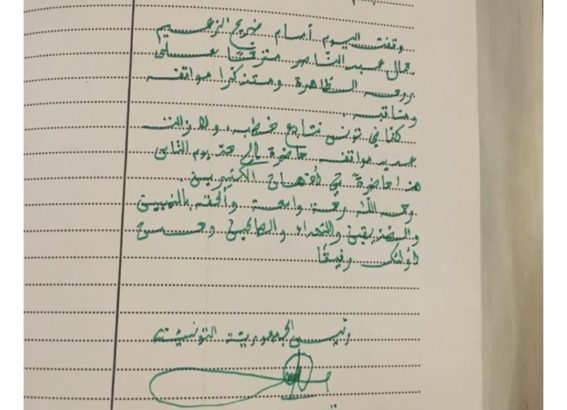 وقفت اليوم أمام ضريح الزعيم
جمال عبد الناصر مترحّما على
روحه الطاهرة ومتذكرا مواقفه
ومناقبه.
كنّا في تونس نتابع خطبه، ولا زالت
عديد مواقفه حاضرة إلى حدّ يوم الناس
هذا حاضرة في أذهان الكثيرين.
رحمه الله رحمة واسعة وألحقه بالنبيين
والصدّيقين والشهداء والصالحين وحسن
أولئك رفيقا
رئيس الجمهورية التونسية